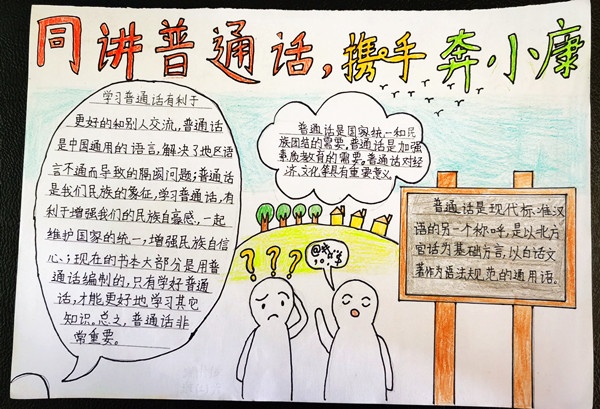 同讲普通话,携手奔小康
学习普通话有利于
更好的和别人交流,普通话
是中国通用的语言,解决了地区语
言不通而导致的隔阂问题;普通话
是我们民族的象征,学习普通话,有
利于增强我们的民族自豪感,一起
维护国家的统一,增强民族自信
心;现在的书本大部分是用普
通话编制的,只有学好普通
话,才能更好地学习其它
知识。总之,普通话非
常重要。
普通话是国家统一和民
族团结的需要,普通话是加强
素质教育的需要。普通话对经
济、文化等具有重要意义
普通话是现代标准汉
语的另一个称呼,是以北方
官话为基础方言,以白话文
著作为语法规范的通用语。
???